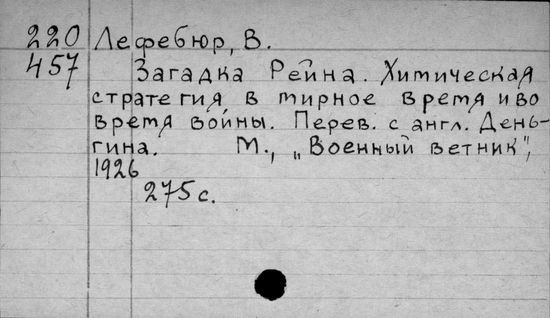 220 Лефебюр, В.
457 Загадка Рейна. Химическая
стратегия в мирное время и во
время войны. Перев. с англ. День-
гина. М., „Военный ветник",
1926
275 с.